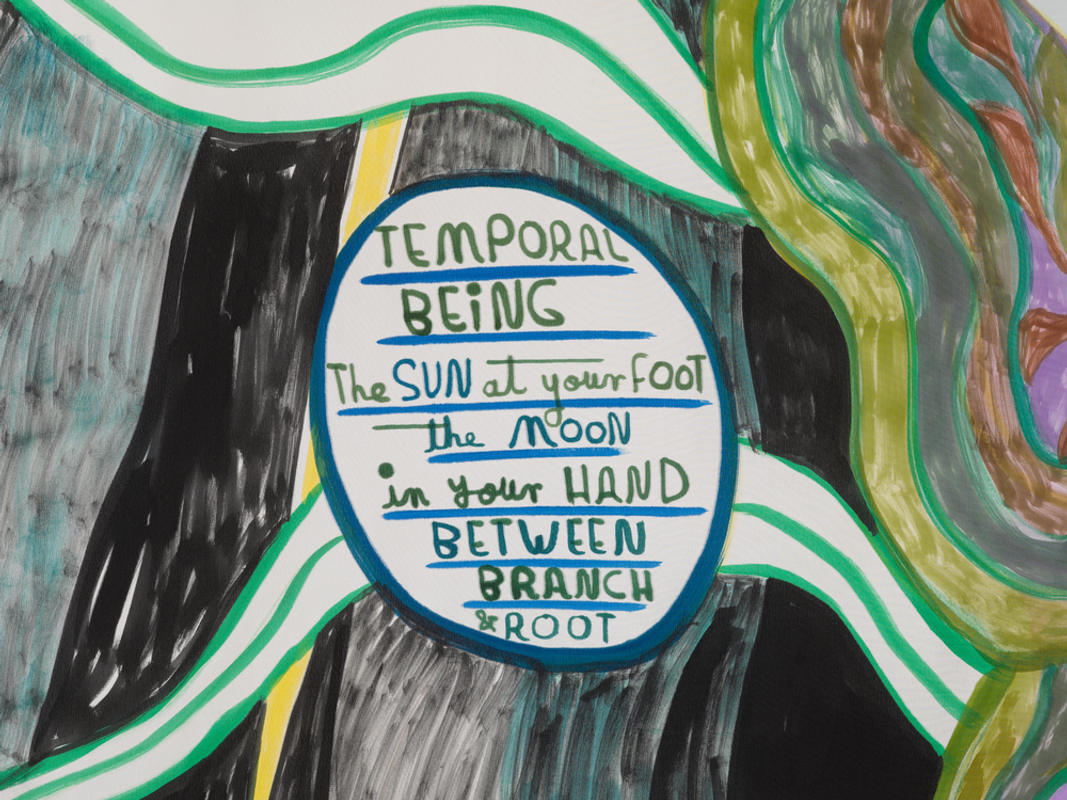 TEMPORAL
BEiNG
The SUN at your FOOT
the MOON
in your HAND
BETWEEN
BRANCH
& ROOT